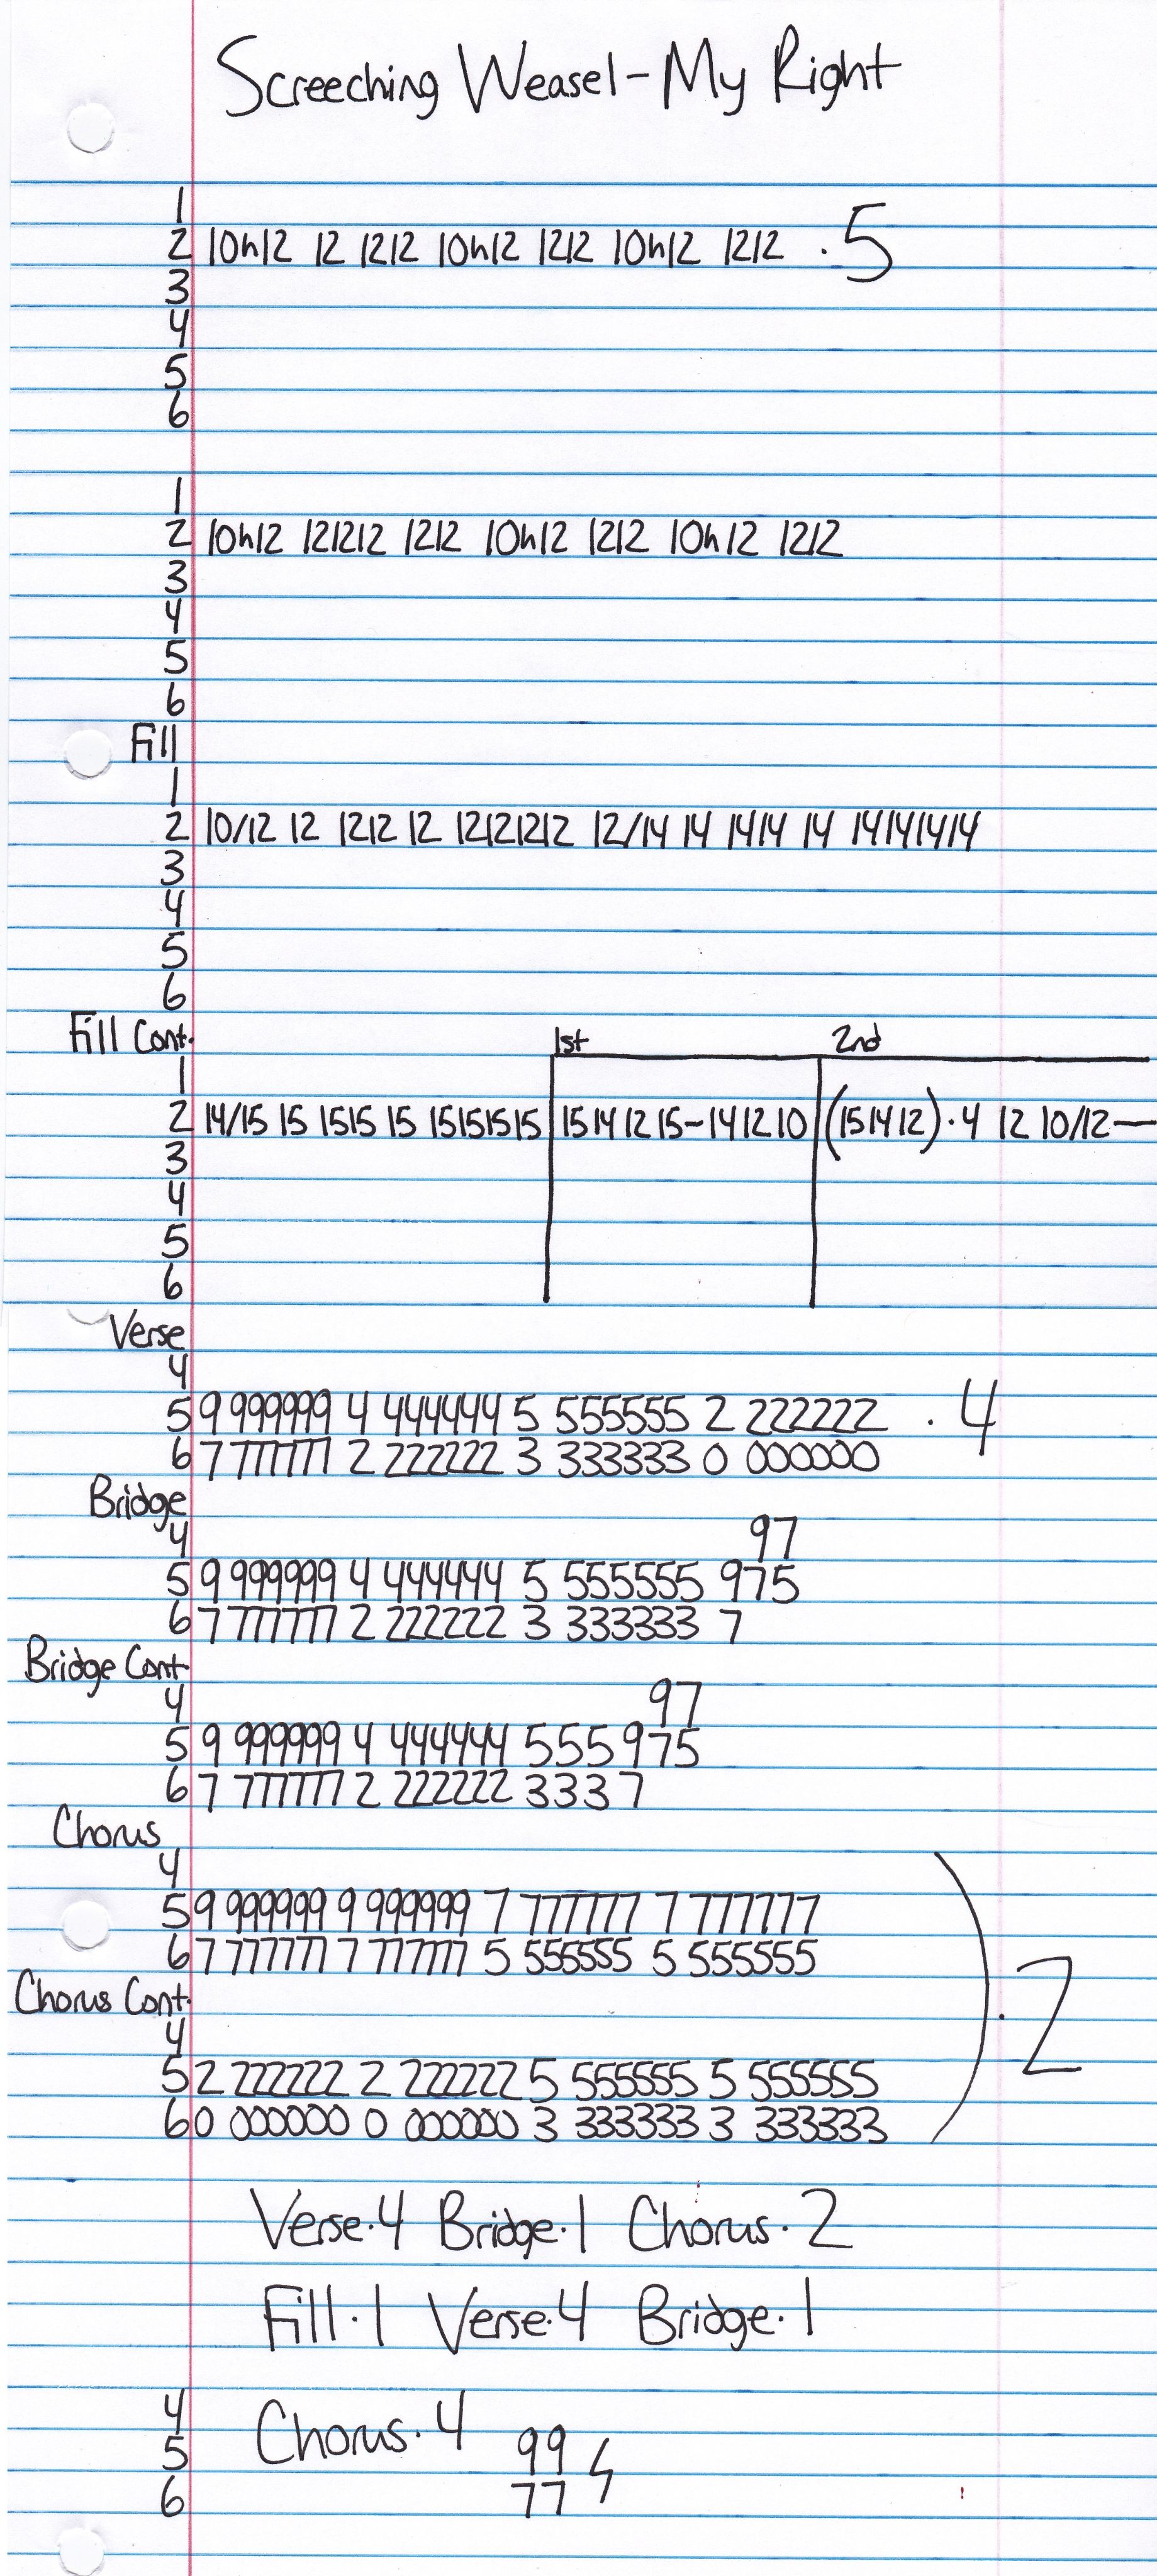 Screeching Weasel - My Right
1
2 10h12 12 1212 10h12 1212 10h12 1212 . 5
3
4
5
6
1
2 10h12 121212 1212 10h12 1212 10h12 1212
3
4
5
6
Fill
1
2 10/12 12 1212 12 12121212 12/14 14 1414 14 14141414
3
4
5
6
Fill Cont. 1st 2nd
1
2 14/15 15 1515 15 15151515 15 14 12 15-14 12 10 (15 14 12) · 4 12 10/12—
3
4
5
6
Verse
4
5 9 999999 4 444444 5 555555 2 222222 . 4
6 7 777777 2 222222 3 333333 0 000000
Bridge
4 97
5 9 999999 4 444444 5 555555 975
6 7 777777 2 222222 3 333333 7
Bridge Cont.
4 97
5 9 999999 4 444444 555 975
6 7 777777 2 222222 333 7
Chorus
4
5 9 999999 9 999999 7 777777 7 777777
6 7 777777 7 777777 5 555555 5 555555
Chorus Cont. ) . 2
4
5 2 222222 2 222222 5 555555 5 555555
6 0 000000 0 000000 3 333333 3 333333
Verse·4 Bridge·1 Chorus·2
Fill·1 Verse·4 Bridge·1
4 Chorus·4
5 99
6 77